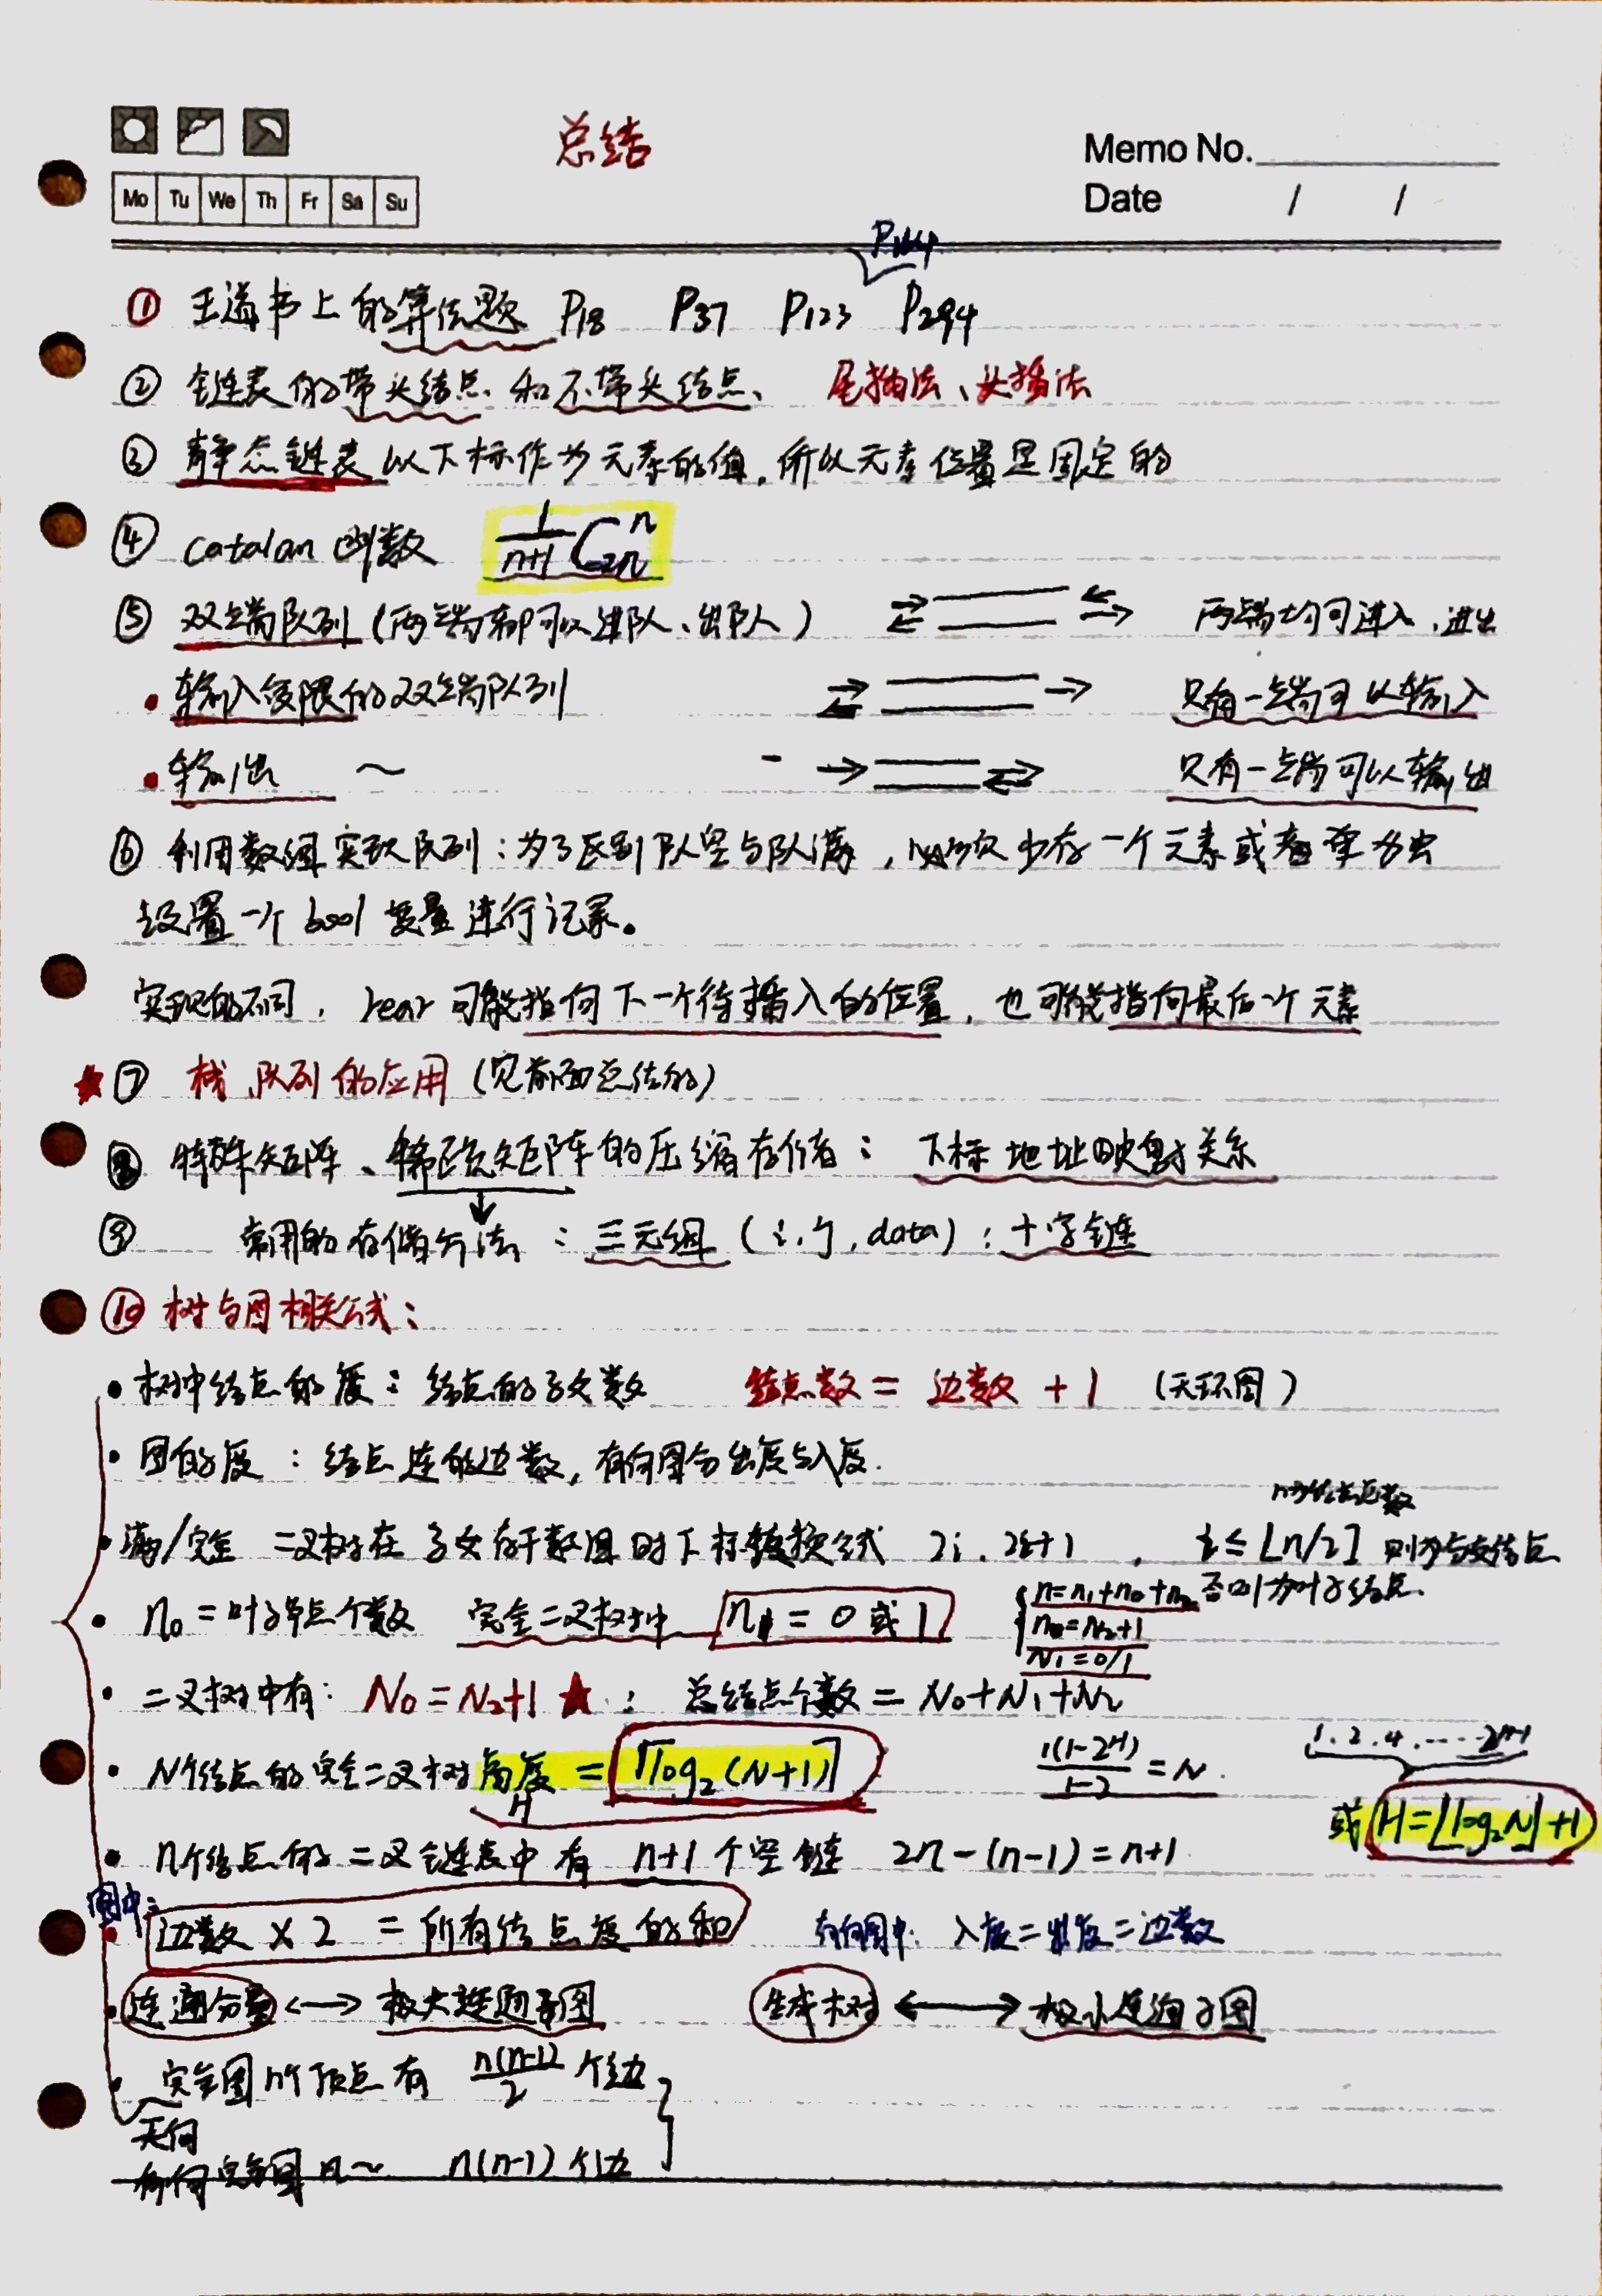 总结
Memo No.
Mo Tu We Th Fr Sa Su
Date / /
① 王道书上的算法题 P18 P37 P123 P294
② 链表的带头结点和不带头结点、 尾插法、头插法
③ 静态链表 以下标作为元素的值,所以元素位置是固定的
④ catalan 函数 1/(n+1) C_{2n}^{n}
⑤ 双端队列(两端都可以进队、出队) 两端均可进入、进出
• 输入受限的双端队列 只有一端可以输入
• 输出 ~ 只有一端可以输出
⑥ 利用数组实现队列:为了区别队空与队满, 少存一个元素或者单独
设置一个 bool 变量进行记录。
实现的不同, rear 可能指向下一个待插入的位置, 也可能指向最后一个元素
★⑦ 栈、队列的应用(见前面总结的)
⑧ 特殊矩阵、稀疏矩阵的压缩存储: 下标 地址映射关系
⑨ 常用的存储方法 : 三元组 (i, j, data) ; 十字链
⑩ 树与图相关公式:
• 树中结点的度: 结点的子女数 结点数 = 边数 + 1 (无环图)
• 图的度 : 结点连的边数, 有向图分出度与入度.
n为结点总数
• 满/完全 二叉树在子女存于数组时下标转换公式 2i, 2i+1 , i ≤ ⌊n/2⌋ 则为分支结点
否则为叶子结点.
• n0 = 叶子节点个数 完全二叉树中 n1 = 0 或 1
n = n1+n0+n2
n0 = n2+1
n1 = 0/1
• 二叉树中有: N0 = N2+1 ★ ; 总结点个数 = N0+N1+N2
• N个结点的完全二叉树高度 = ⌈log2(N+1)⌉ 1(1-2^H)/(1-2) = N. 1. 2. 4. ···· 2^{H-1}
H
或 H = ⌊log2N⌋+1
• n个结点的二叉链表中有 n+1 个空链 2n-(n-1) = n+1
图中:
• 边数 × 2 = 所有结点度的和 有向图中: 入度=出度=边数
• 连通分量 ⟷ 极大连通子图 生成树 ⟷ 极小连通子图
• 完全图n个顶点有 n(n-1)/2 个边
无向
有向完全图 n~ n(n-1) 个边